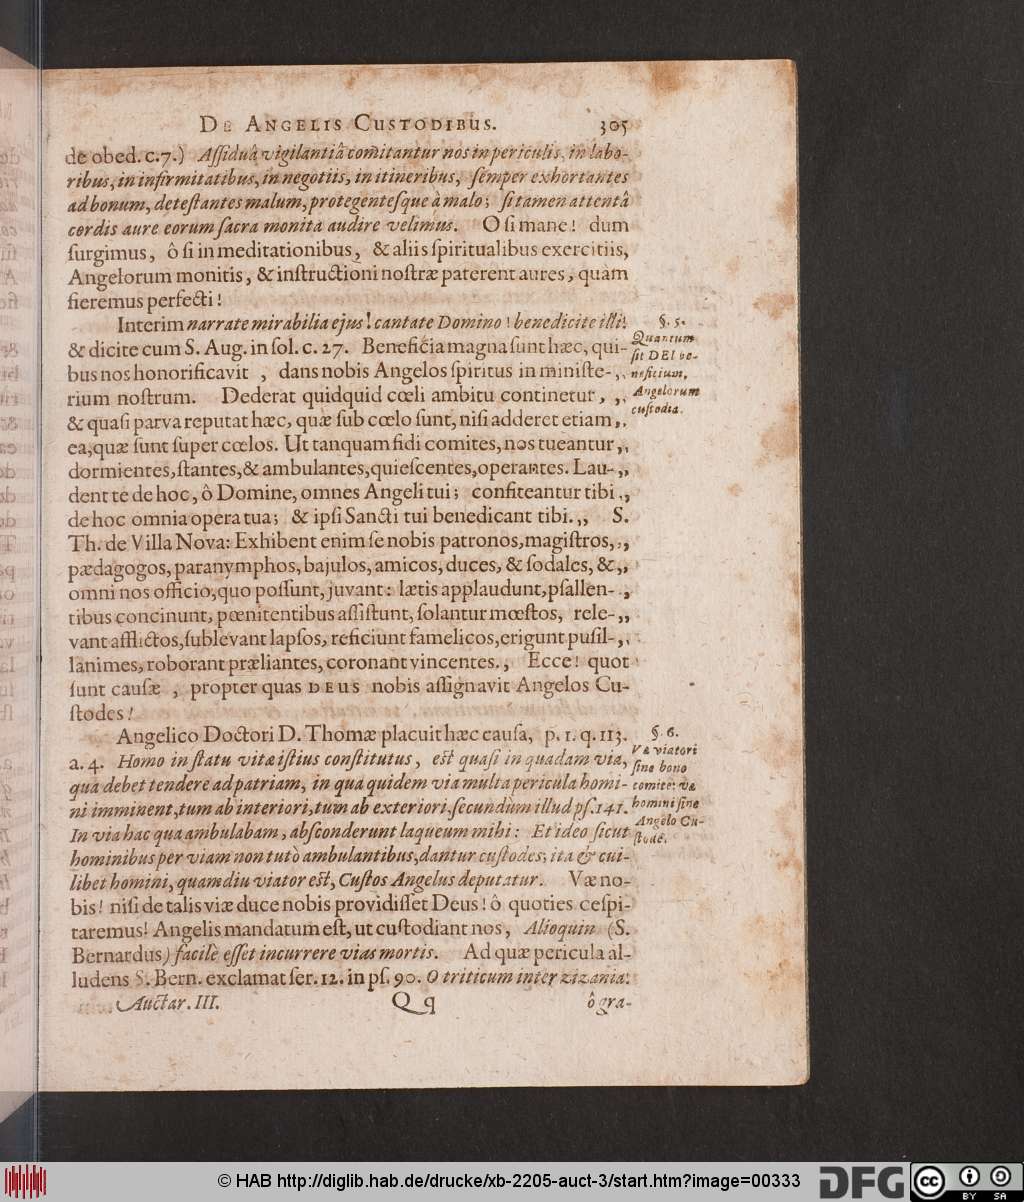 DE ANGELIS CUSTODIBUS. 305
de obed. c.7.) Aſſiduâ vigilantiâ comitantur nos in periculis, in labo-
ribus, in infirmitatibus, in negotiis, in itineribus, ſemper exhortantes
ad bonum, deteſtantes malum, protegenteſque à malo; ſi tamen attentâ
cordis aure eorum ſacra monita audire velimus. O ſi mane! dum
ſurgimus, ô ſi in meditationibus, & aliis ſpiritualibus exercitiis,
Angelorum monitis, & inſtructioni noſtræ paterent aures, quàm
fieremus perfecti!
Interim narrate mirabilia ejus! cantate Domino! benedicite illi!
& dicite cum S. Aug. in ſol. c. 27. Beneficia magna ſunt hæc, qui-
bus nos honorificavit, dans nobis Angelos ſpiritus in miniſte- ,,
rium noſtrum. Dederat quidquid cœli ambitu continetur, ,,
& quaſi parva reputat hæc, quæ ſub cœlo ſunt, niſi adderet etiam ,,
ea, quæ ſunt ſuper cœlos. Ut tanquam fidi comites, nos tueantur ,,
dormientes, ſtantes, & ambulantes, quieſcentes, operantes. Lau- ,,
dent te de hoc, ô Domine, omnes Angeli tui; confiteantur tibi ,,
de hoc omnia opera tua; & ipſi Sancti tui benedicant tibi. ,, S.
Th. de Villa Nova: Exhibent enim ſe nobis patronos, magiſtros, ,,
pædagogos, paranymphos, bajulos, amicos, duces, & ſodales, & ,,
omni nos officio, quo poſſunt, juvant: lætis applaudunt, pſallen- ,,
tibus concinunt, pœnitentibus aſſiſtunt, ſolantur mœſtos, rele- ,,
vant afflictos, ſublevant lapſos, reficiunt famelicos, erigunt puſil- ,,
lanimes, roborant præliantes, coronant vincentes. ,, Ecce! quot
ſunt cauſæ, propter quas DEUS nobis aſſignavit Angelos Cu-
ſtodes!
Angelico Doctori D. Thomæ placuit hæc cauſa, p. 1. q. 113.
a. 4. Homo in ſtatu vitæ iſtius conſtitutus, eſt quaſi in quadam via,
qua debet tendere ad patriam, in qua quidem via multa pericula homi-
ni imminent, tum ab interiori, tum ab exteriori, ſecundùm illud pſ. 141.
In via hac qua ambulabam, abſconderunt laqueum mihi: Et ideo ſicut
hominibus per viam non tutò ambulantibus, dantur cuſtodes; ita & cui-
libet homini, quamdiu viator eſt, Cuſtos Angelus deputatur. Væ no-
bis! niſi de talis viæ duce nobis providiſſet Deus! ô quoties ceſpi-
taremus! Angelis mandatum eſt, ut cuſtodiant nos, Alioquin (S.
Bernardus) facilè eſſet incurrere vias mortis. Ad quæ pericula al-
ludens S. Bern. exclamat ſer. 12. in pſ. 90. O triticum inter zizania!
Auctar. III. Q q ô gra-
§. 5.
Quantum
ſit DEI be-
neficium,
Angelorum
cuſtodia.
§. 6.
Væ viatori
ſine bono
comite: væ
homini ſine
Angelo Cu-
ſtode.
© HAB http://diglib.hab.de/drucke/xb-2205-auct-3/start.htm?image=00333
DFG
cc BY SA